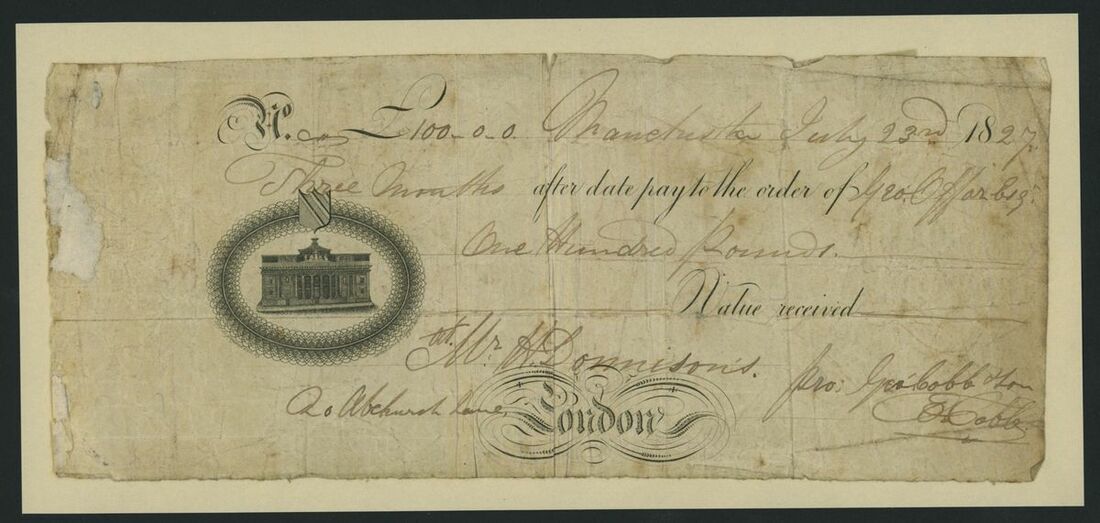 No. £100-0-0. Manchester July 23rd 1827.
Three Months after date pay to the order of Geo. Offor Esqr.
One Hundred Pounds.
Value received
at Mr H. Donnison's.
20 Abchurch Lane, London
pro: Geo: Cobb & Son
E Cobb